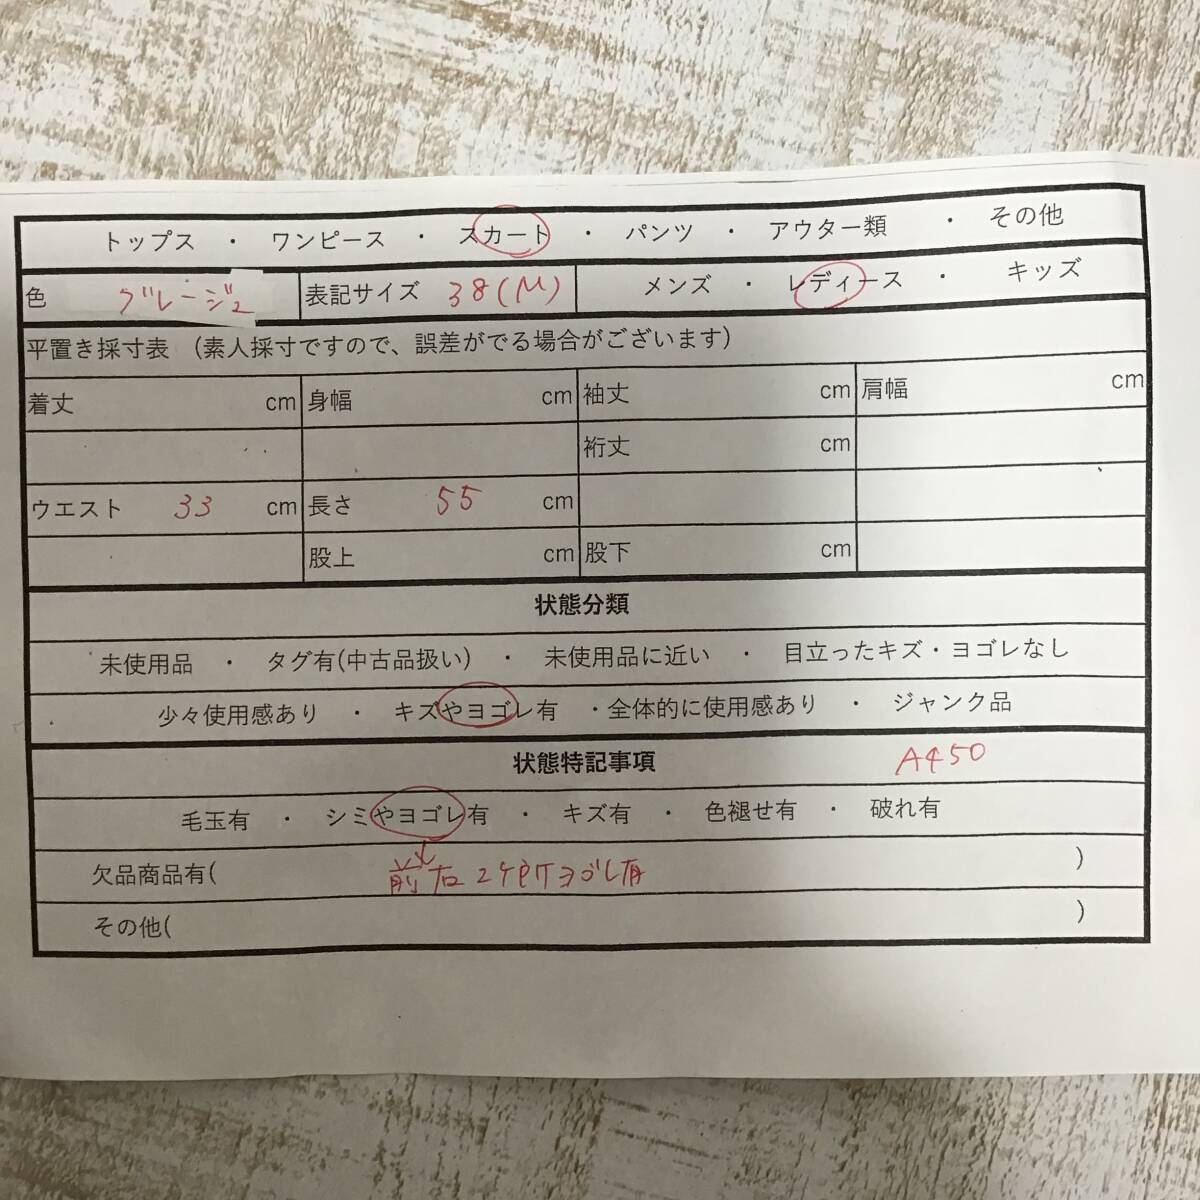 トップス ・ ワンピース ・ スカート ・ パンツ ・ アウター類 ・ その他
色 グレージュ 表記サイズ 38(M) メンズ ・ レディース ・ キッズ
平置き採寸表 (素人採寸ですので、誤差がでる場合がございます)
着丈 cm 身幅 cm 袖丈 cm 肩幅 cm
裄丈 cm
ウエスト 33 cm 長さ 55 cm
股上 cm 股下 cm
状態分類
未使用品 ・ タグ有(中古品扱い) ・ 未使用品に近い ・ 目立ったキズ・ヨゴレなし
少々使用感あり ・ キズやヨゴレ有 ・全体的に使用感あり ・ ジャンク品
状態特記事項 A450
毛玉有 ・ シミやヨゴレ有 ・ キズ有 ・ 色褪せ有 ・ 破れ有
欠品商品有( 前右2ヶ所ヨゴレ有 )
その他( )